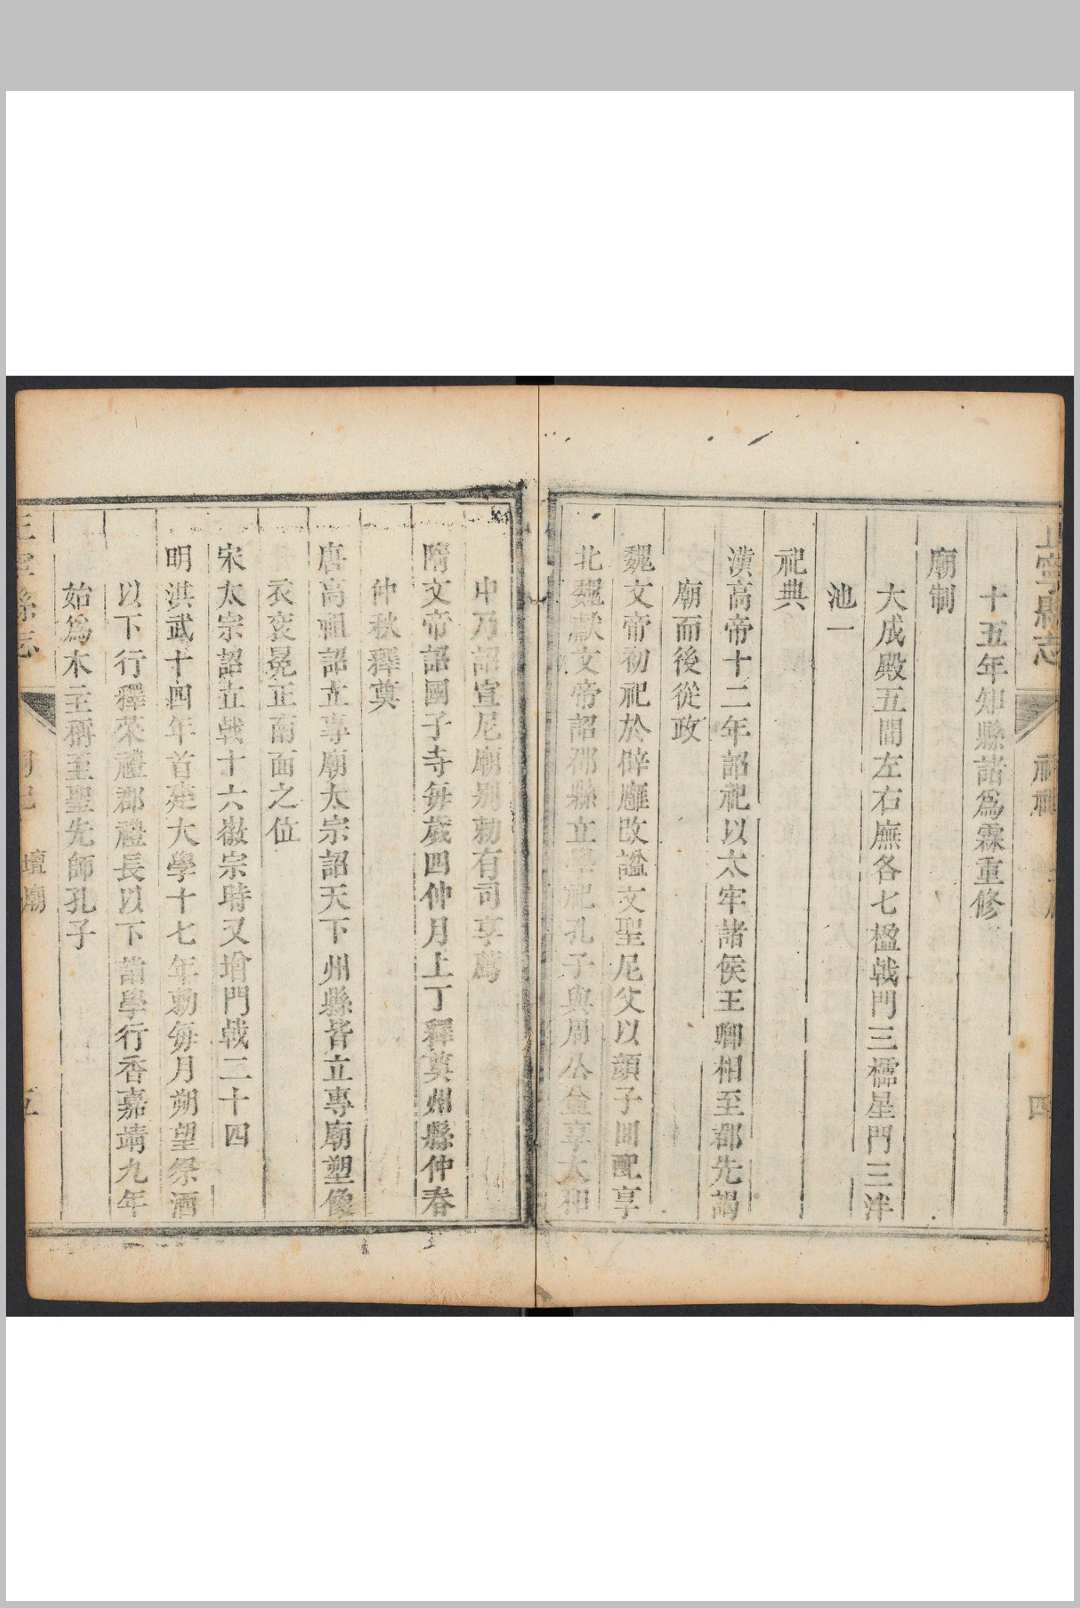 寧縣志
四
十五年知縣諸爲霖重修
廟制
大成殿五間左右廡各七楹㦸門三櫺星門三泮
池一
祀典
漢高帝十二年詔祀以太牢諸侯王卿相至郡先謁
廟而後從政
魏文帝初祀於辟廱改謚文聖尼父以顔子回配享
北魏獻文帝詔郡縣立學祀孔子與周公並享太和
中乃詔宣尼廟别勅有司享薦
隋文帝詔國子寺每歲四仲月上丁釋奠州縣仲春
仲秋釋奠
唐高祖詔立專廟太宗詔天下州縣皆立專廟塑像
衣衮冕正南面之位
宋太宗詔立㦸十六徽宗時又增門㦸二十四
明洪武十四年首建大學十七年勅每月朔望祭酒
以下行釋菜禮郡禮長以下當學行香嘉靖九年
始爲木主稱至聖先師孔子
縣志
壇廟
五